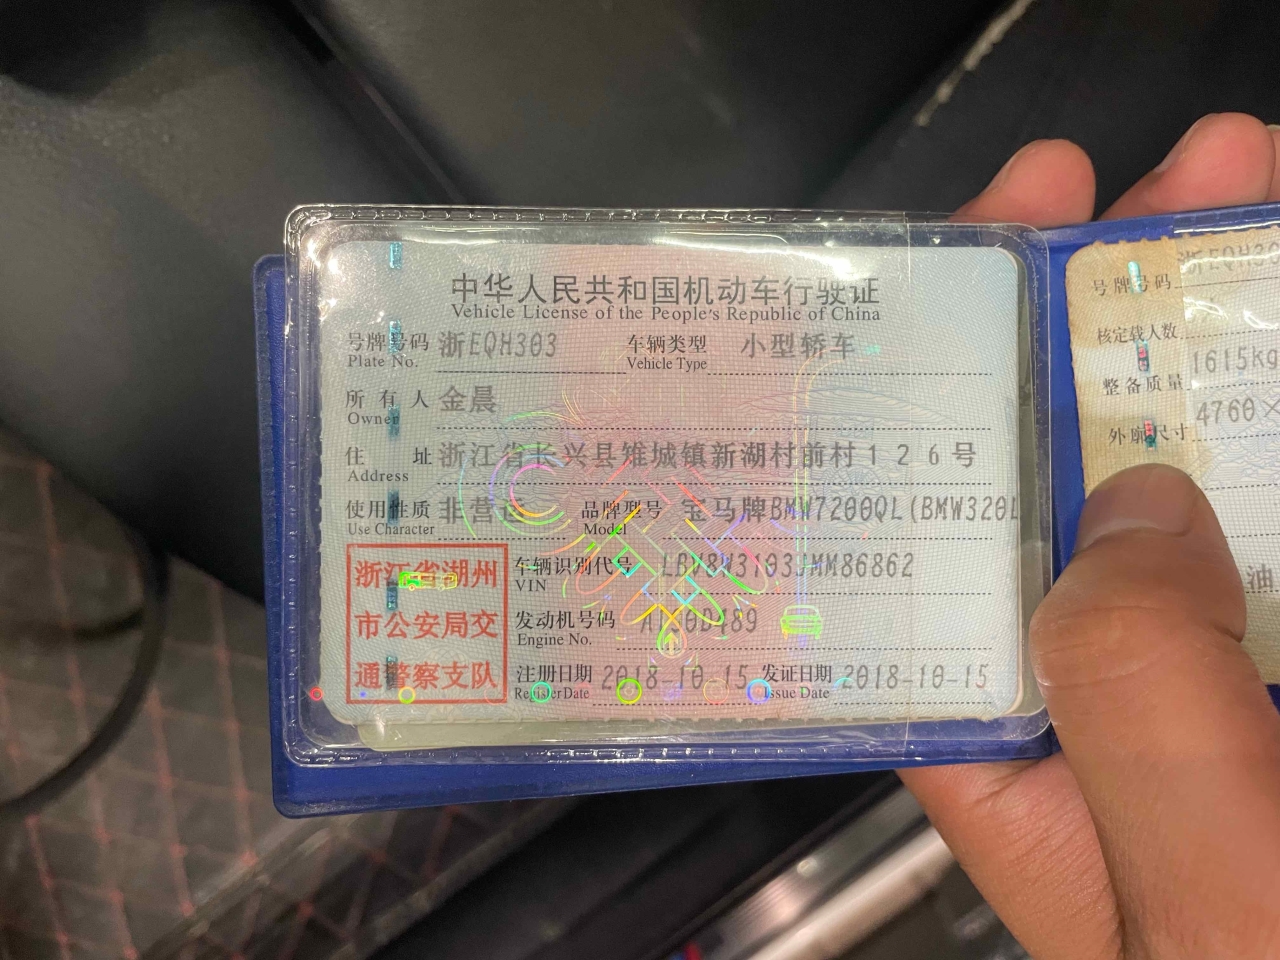 中华人民共和国机动车行驶证
Vehicle License of the People's Republic of China
号牌号码 浙EQH303 车辆类型 小型轿车
Plate No. Vehicle Type
所有人 金晨
Owner
住址 浙江省长兴县雉城镇新湖村前村126号
Address
使用性质 非营运 品牌型号 宝马牌BMW7200QL(BMW320L
Use Character Model
浙江省湖州
市公安局交
通警察支队
车辆识别代号
VIN
发动机号码
Engine No.
注册日期 2018-10-15 发证日期 2018-10-15
Register Date Issue Date
号牌号码 浙EQH30
核定载人数
整备质量 1615kg
外廓尺寸 4760×
油